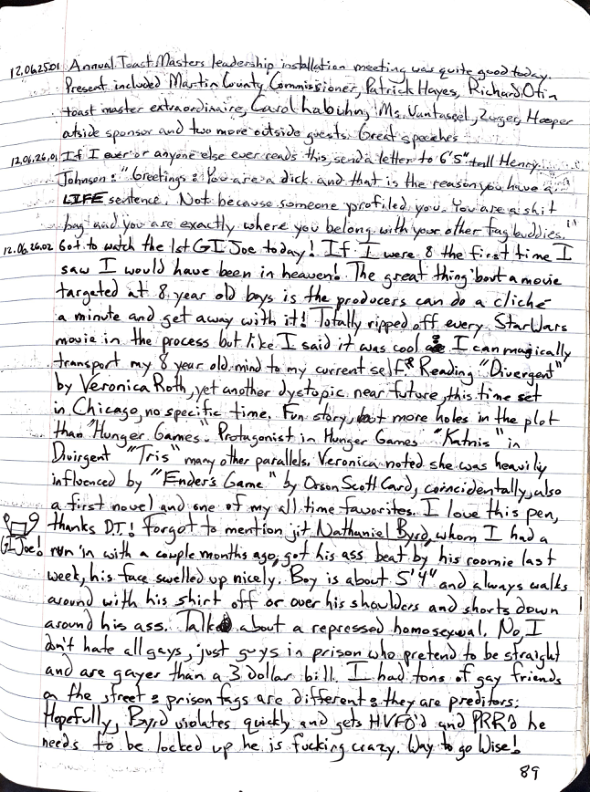 12.062501 Annual ToastMasters leadership installation meeting was quite good today.
Present included Martin County Commissioner, Patrick Hayes, Richard Otin
toast master extraordinaire, Carol Labuhn, Ms. Vantassel, Zueger, Hooper
outside sponsor and two more outside guests. Great speeches
12.06.26.01 If I ever or anyone else ever reads this, send a letter to 6'5" tall Henry
Johnson: "Greetings: You are a dick and that is the reason you have a
LIFE sentence. Not because someone profiled you. You are a shit
bag and you are exactly where you belong with your other fag buddies."
12.06.26.02 Got to watch the 1st GI Joe today! If I were 8 the first time I
saw I would have been in heaven! The great thing 'bout a movie
targeted at 8 year old boys is the producers can do a cliche
a minute and get away with it! Totally ripped off every StarWars
movie in the process but like I said it was cool I can magically
transport my 8 year old mind to my current self. Reading "Divergent"
by Veronica Roth, yet another dystopic near future, this time set
in Chicago, no specific time. Fun story, but more holes in the plot
than "Hunger Games". Protagonist in Hunger Games "Katnis" in
Divirgent "Tris" many other parallels. Veronica noted she was heavily
influenced by "Ender's Game" by Orson Scott Card, coincidentally, also
a first novel and one of my all time favorites. I love this pen,
thanks D.T.! Forgot to mention jit Nathaniel Byrd, whom I had a
GI Joe! run in with a couple months ago, got his ass beat by his roomie last
week, his face swelled up nicely. Boy is about 5'4" and always walks
around with his shirt off or over his shoulders and shorts down
around his ass. Talk about a repressed homosexual. No, I
don't hate all gays, just guys in prison who pretend to be straight
and are gayer than a 3 dollar bill. I had tons of gay friends
on the street : prison fags are different : they are preditors;
Hopefully, Byrd violates quickly and gets HVFO'd and PRR'd he
needs to be locked up he is fucking crazy. Way to go Wise!
89